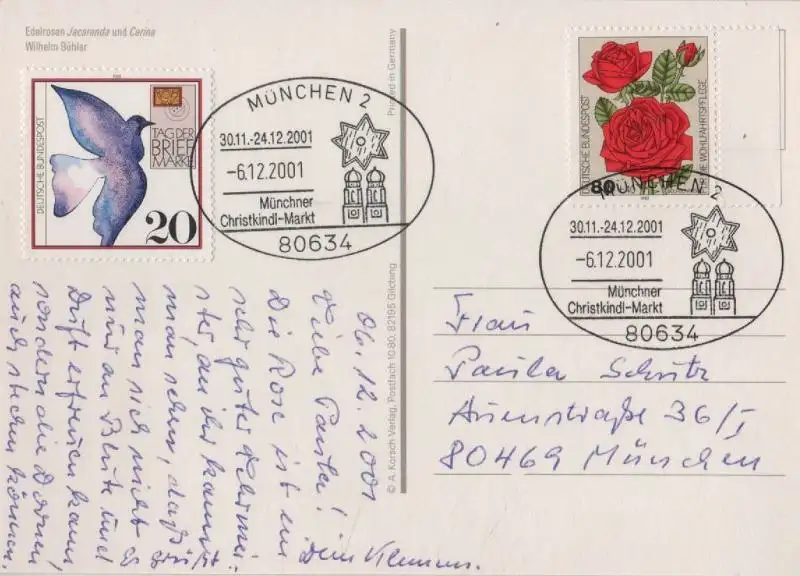 Edelrosen Jacaranda und Carina
Wilhelm Bühler
DEUTSCHE BUNDESPOST
TAG DER
BRIEF
MARKE
20
MÜNCHEN 2
30.11.-24.12.2001
-6.12.2001
Münchner
Christkindl-Markt
80634
Printed in Germany
© A. Korsch Verlag, Postfach 10 80, 82195 Gilching
DEUTSCHE BUNDESPOST
WOHLFAHRTSPFLEGE
80
MÜNCHEN 2
30.11.-24.12.2001
-6.12.2001
Münchner
Christkindl-Markt
80634
06.12.2001
Liebe Paula!
Die Rose ist ein
sehr guter Lehrmei-
ster, an ihr kannst
man sehen, daß
man sich nicht
nur an Blüte und
Duft erfreuen kann,
sondern die Dornen
auch stechen können.
Dein Klemens.
Frau
Paula Schütz
Auenstraße 36/I
80469 München